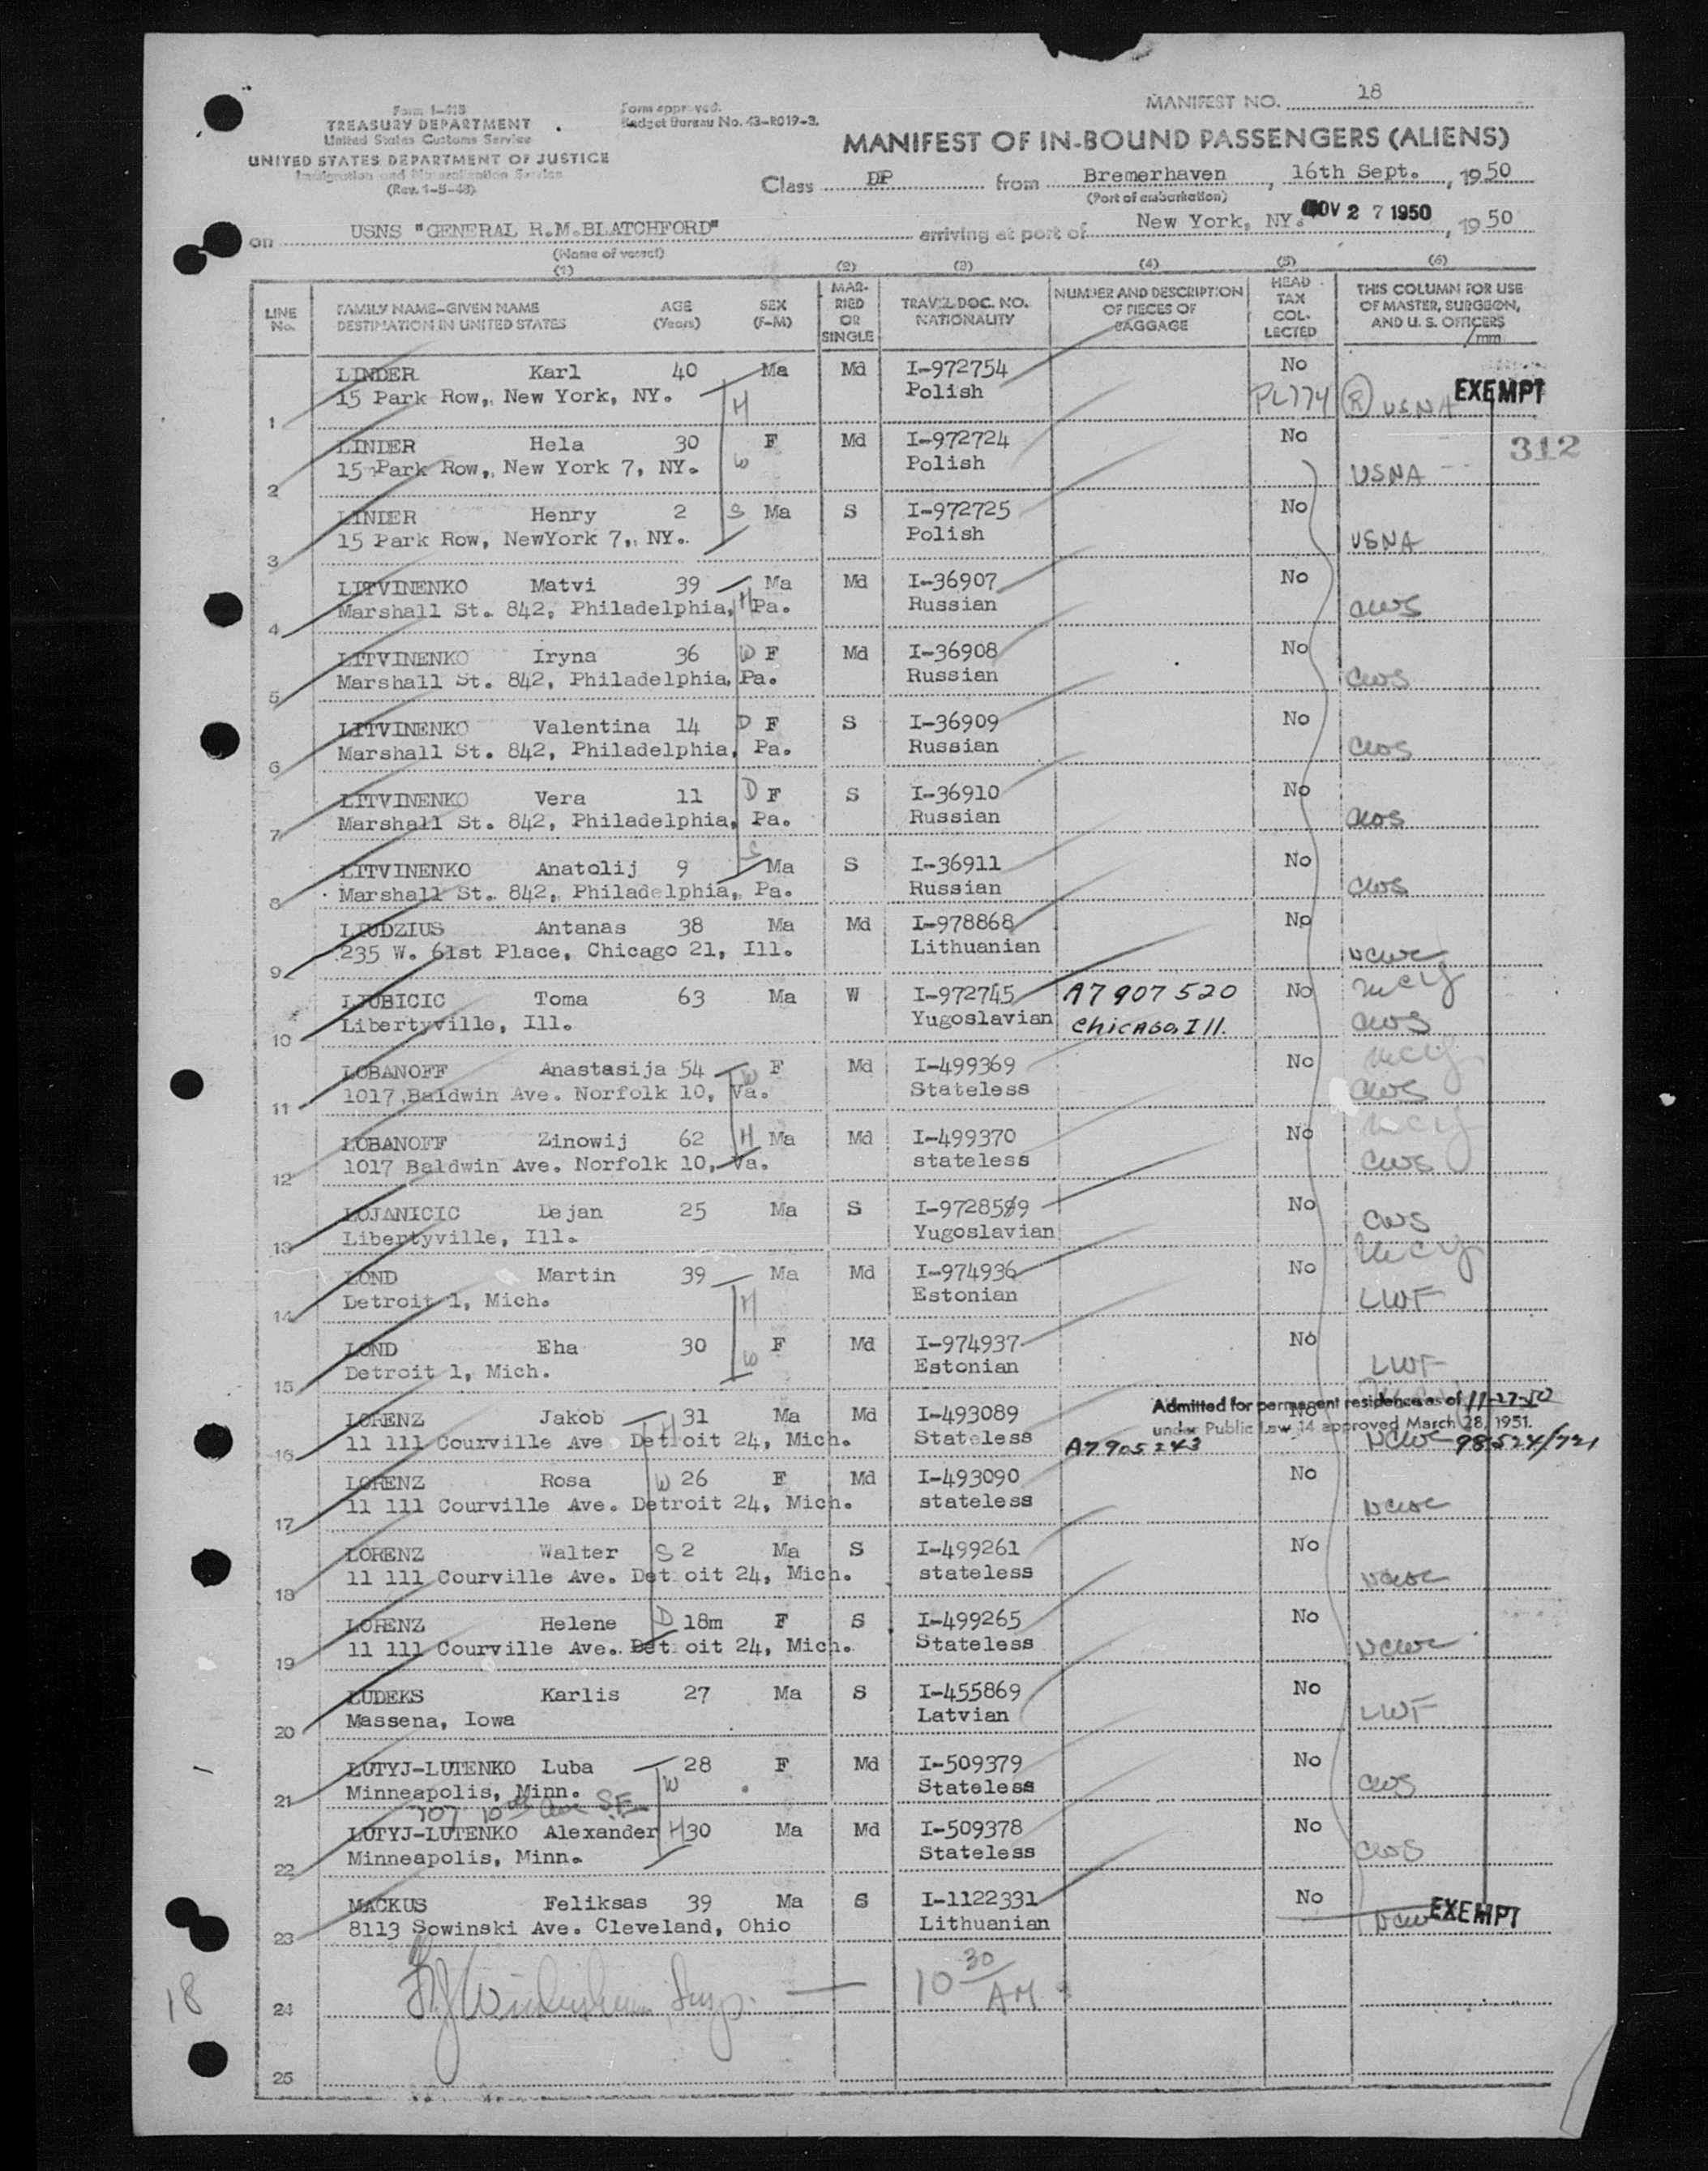 MANIFEST NO. 18
Form I-415
TREASURY DEPARTMENT
United States Customs Service
UNITED STATES DEPARTMENT OF JUSTICE
Immigration and Naturalization Service
(Rev. 1-5-48)
Form approved.
Budget Bureau No. 43-R019-3.
MANIFEST OF IN-BOUND PASSENGERS (ALIENS)
Class DP from Bremerhaven, 16th Sept., 1950
(Port of embarkation)
on USNS "GENERAL R.M.BLATCHFORD" arriving at port of New York, NY. NOV 27 1950, 1950
(Name of vessel)
(1) (2) (3) (4) (5) (6)
LINE No. FAMILY NAME-GIVEN NAME DESTINATION IN UNITED STATES AGE (Years) SEX (F-M) MARRIED OR SINGLE TRAVEL DOC. NO. NATIONALITY NUMBER AND DESCRIPTION OF PIECES OF BAGGAGE HEAD TAX COLLECTED THIS COLUMN FOR USE OF MASTER, SURGEON, AND U. S. OFFICERS
/mm
LINDER Karl 40 Ma Md I-972754 No
1 15 Park Row, New York, NY. H Polish PL774 (R) USNA EXEMPT
LINDER Hela 30 F Md I-972724 No 312
2 15 Park Row, New York 7, NY. W Polish USNA
LINDER Henry 2 S Ma S I-972725 No
3 15 Park Row, NewYork 7, NY. Polish USNA
LITVINENKO Matvi 39 Ma Md I-36907 No
4 Marshall St. 842, Philadelphia, H Pa. Russian CWS
LITVINENKO Iryna 36 W F Md I-36908 No
5 Marshall St. 842, Philadelphia, Pa. Russian CWS
LITVINENKO Valentina 14 D F S I-36909 No
6 Marshall St. 842, Philadelphia, Pa. Russian CWS
LITVINENKO Vera 11 D F S I-36910 No
7 Marshall St. 842, Philadelphia, Pa. Russian CWS
LITVINENKO Anatolij 9 S Ma S I-36911 No
8 Marshall St. 842, Philadelphia, Pa. Russian CWS
LIUDZIUS Antanas 38 Ma Md I-978868 No
9 235 W. 61st Place, Chicago 21, Ill. Lithuanian NCWC
LJUBICIC Toma 63 Ma W I-972745 A7 907 520 No
10 Libertyville, Ill. Yugoslavian Chicago, Ill. CWS
LOBANOFF Anastasija 54 W F Md I-499369 No
11 1017 Baldwin Ave. Norfolk 10, Va. Stateless CWS
LOBANOFF Zinowij 62 H Ma Md I-499370 No
12 1017 Baldwin Ave. Norfolk 10, Va. stateless CWS
LOJANICIC Dejan 25 Ma S I-9728589 No
13 Libertyville, Ill. Yugoslavian CWS
LOND Martin 39 Ma Md I-974936 No
14 Detroit 1, Mich. H Estonian LWF
LOND Eha 30 F Md I-974937 No
15 Detroit 1, Mich. W Estonian LWF
Admitted for permanent residence as of 11-27-50
under Public Law 14 approved March 28, 1951.
LORENZ Jakob 31 H Ma Md I-493089 No
16 11 111 Courville Ave Detroit 24, Mich. Stateless A7 905 243 NCWC 98524/721
LORENZ Rosa W 26 F Md I-493090 No
17 11 111 Courville Ave. Detroit 24, Mich. stateless NCWC
LORENZ Walter S 2 Ma S I-499261 No
18 11 111 Courville Ave. Det oit 24, Mich. stateless NCWC
LORENZ Helene D 18m F S I-499265 No
19 11 111 Courville Ave. Det oit 24, Mich. Stateless NCWC
LUDEKS Karlis 27 Ma S I-455869 No
20 Massena, Iowa Latvian LWF
LUTYJ-LUTENKO Luba 28 F Md I-509379 No
21 Minneapolis, Minn. W Stateless CWS
707 10th Ave S.E.
LUTYJ-LUTENKO Alexander H 30 Ma Md I-509378 No
22 Minneapolis, Minn. Stateless CWS
MACKUS Feliksas 39 Ma S I-1122331 No
23 8113 Sowinski Ave. Cleveland, Ohio Lithuanian NCWC EXEMPT
24 Insp. 10 30 AM
18
25